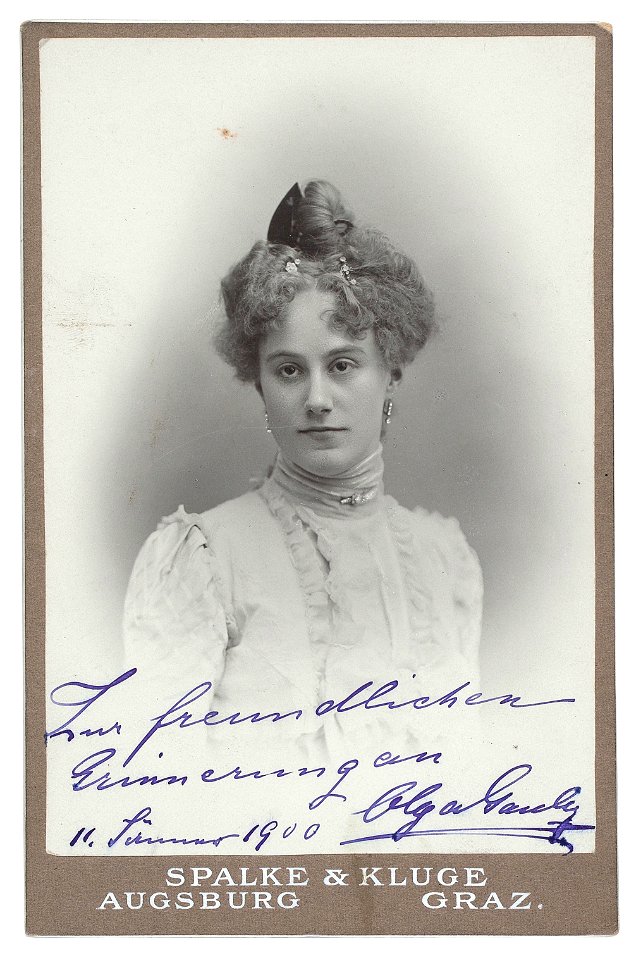 Zur freundlichen
Erinnerung an
11. Jänner 1900 Olga
SPALKE & KLUGE
AUGSBURG GRAZ.